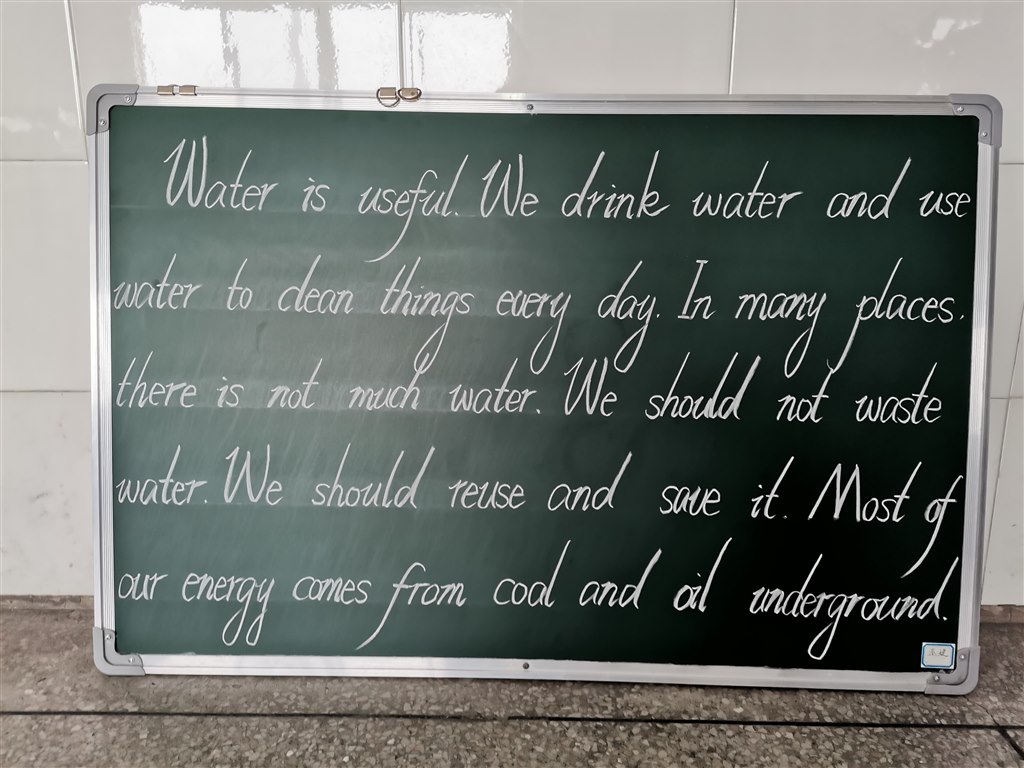 Water is useful. We drink water and use
water to clean things every day. In many places.
there is not much water. We should not waste
water. We should reuse and save it. Most of
our energy comes from coal and oil underground.